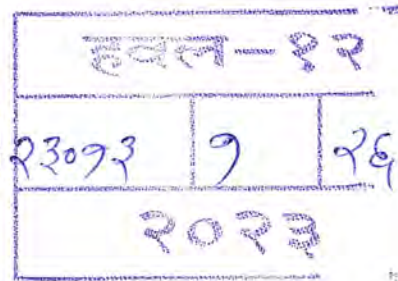 हवल-१२
२३०१३ १ २६
२०२३